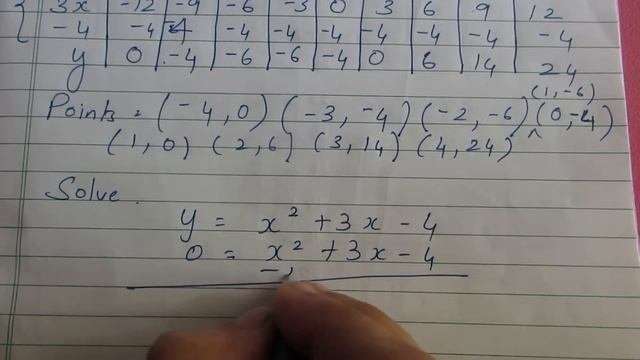 3x | -12 | -9 | -6 | -3 | 0 | 3 | 6 | 9 | 12
-4 | -4 | -4 | -4 | -4 | -4 | -4 | -4 | -4 | -4
y | 0 | -4 | -6 | -6 | -4 | 0 | 6 | 14 | 24
(1,-6)
Points = (-4,0) (-3,-4) (-2,-6) ^ (0,-4)
(1,0) (2,6) (3,14) (4,24)
Solve.
y = x² + 3x - 4
0 = x² + 3x - 4
-